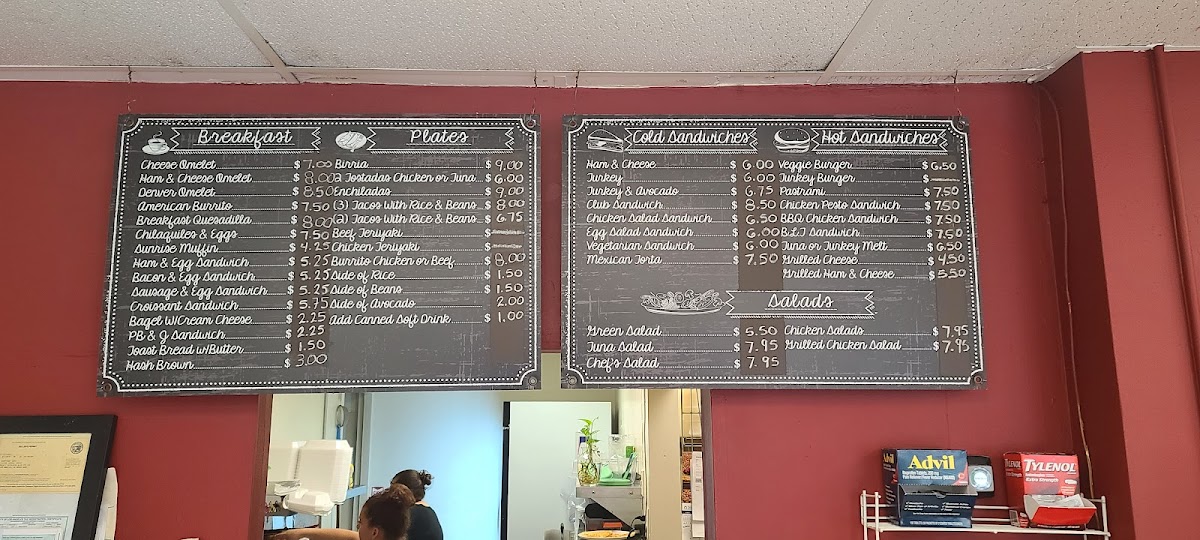 Breakfast
Cheese Omelet $ 7.00
Ham & Cheese Omelet $ 8.00
Denver Omelet $ 8.50
American Burrito $ 7.50
Breakfast Quesadilla $ 8.00
Chilaquiles & Eggs $ 7.50
Sunrise Muffin $ 4.25
Ham & Egg Sandwich $ 5.25
Bacon & Egg Sandwich $ 5.25
Sausage & Egg Sandwich $ 5.25
Croissant Sandwich $ 5.75
Bagel W/Cream Cheese $ 2.25
PB & J Sandwich $ 2.25
Toast Bread w/Butter $ 1.50
Hash Brown $ 3.00
Plates
Birria $ 9.00
2 Tostadas Chicken or Tuna $ 6.00
Enchiladas $ 9.00
(3) Tacos With Rice & Beans $ 8.00
(2) Tacos With Rice & Beans $ 6.75
Beef Teriyaki $
Chicken Teriyaki $
Burrito Chicken or Beef $ 8.00
Side of Rice $ 1.50
Side of Beans $ 1.50
Side of Avocado $ 2.00
Add Canned Soft Drink $ 1.00
Cold Sandwiches
Ham & Cheese $ 6.00
Turkey $ 6.00
Turkey & Avocado $ 6.75
Club Sandwich $ 8.50
Chicken Salad Sandwich $ 6.50
Egg Salad Sandwich $ 6.00
Vegetarian Sandwich $ 6.00
Mexican Torta $ 7.50
Hot Sandwiches
Veggie Burger $ 6.50
Turkey Burger $
Pastrami $ 7.50
Chicken Pesto Sandwich $ 7.50
BBQ Chicken Sandwich $ 7.50
B.L.T Sandwich $ 7.50
Tuna or Turkey Melt $ 6.50
Grilled Cheese $ 4.50
Grilled Ham & Cheese $ 5.50
Salads
Green Salad $ 5.50
Tuna Salad $ 7.95
Chef's Salad $ 7.95
Chicken Salads $ 7.95
Grilled Chicken Salad $ 7.95
Advil
TYLENOL